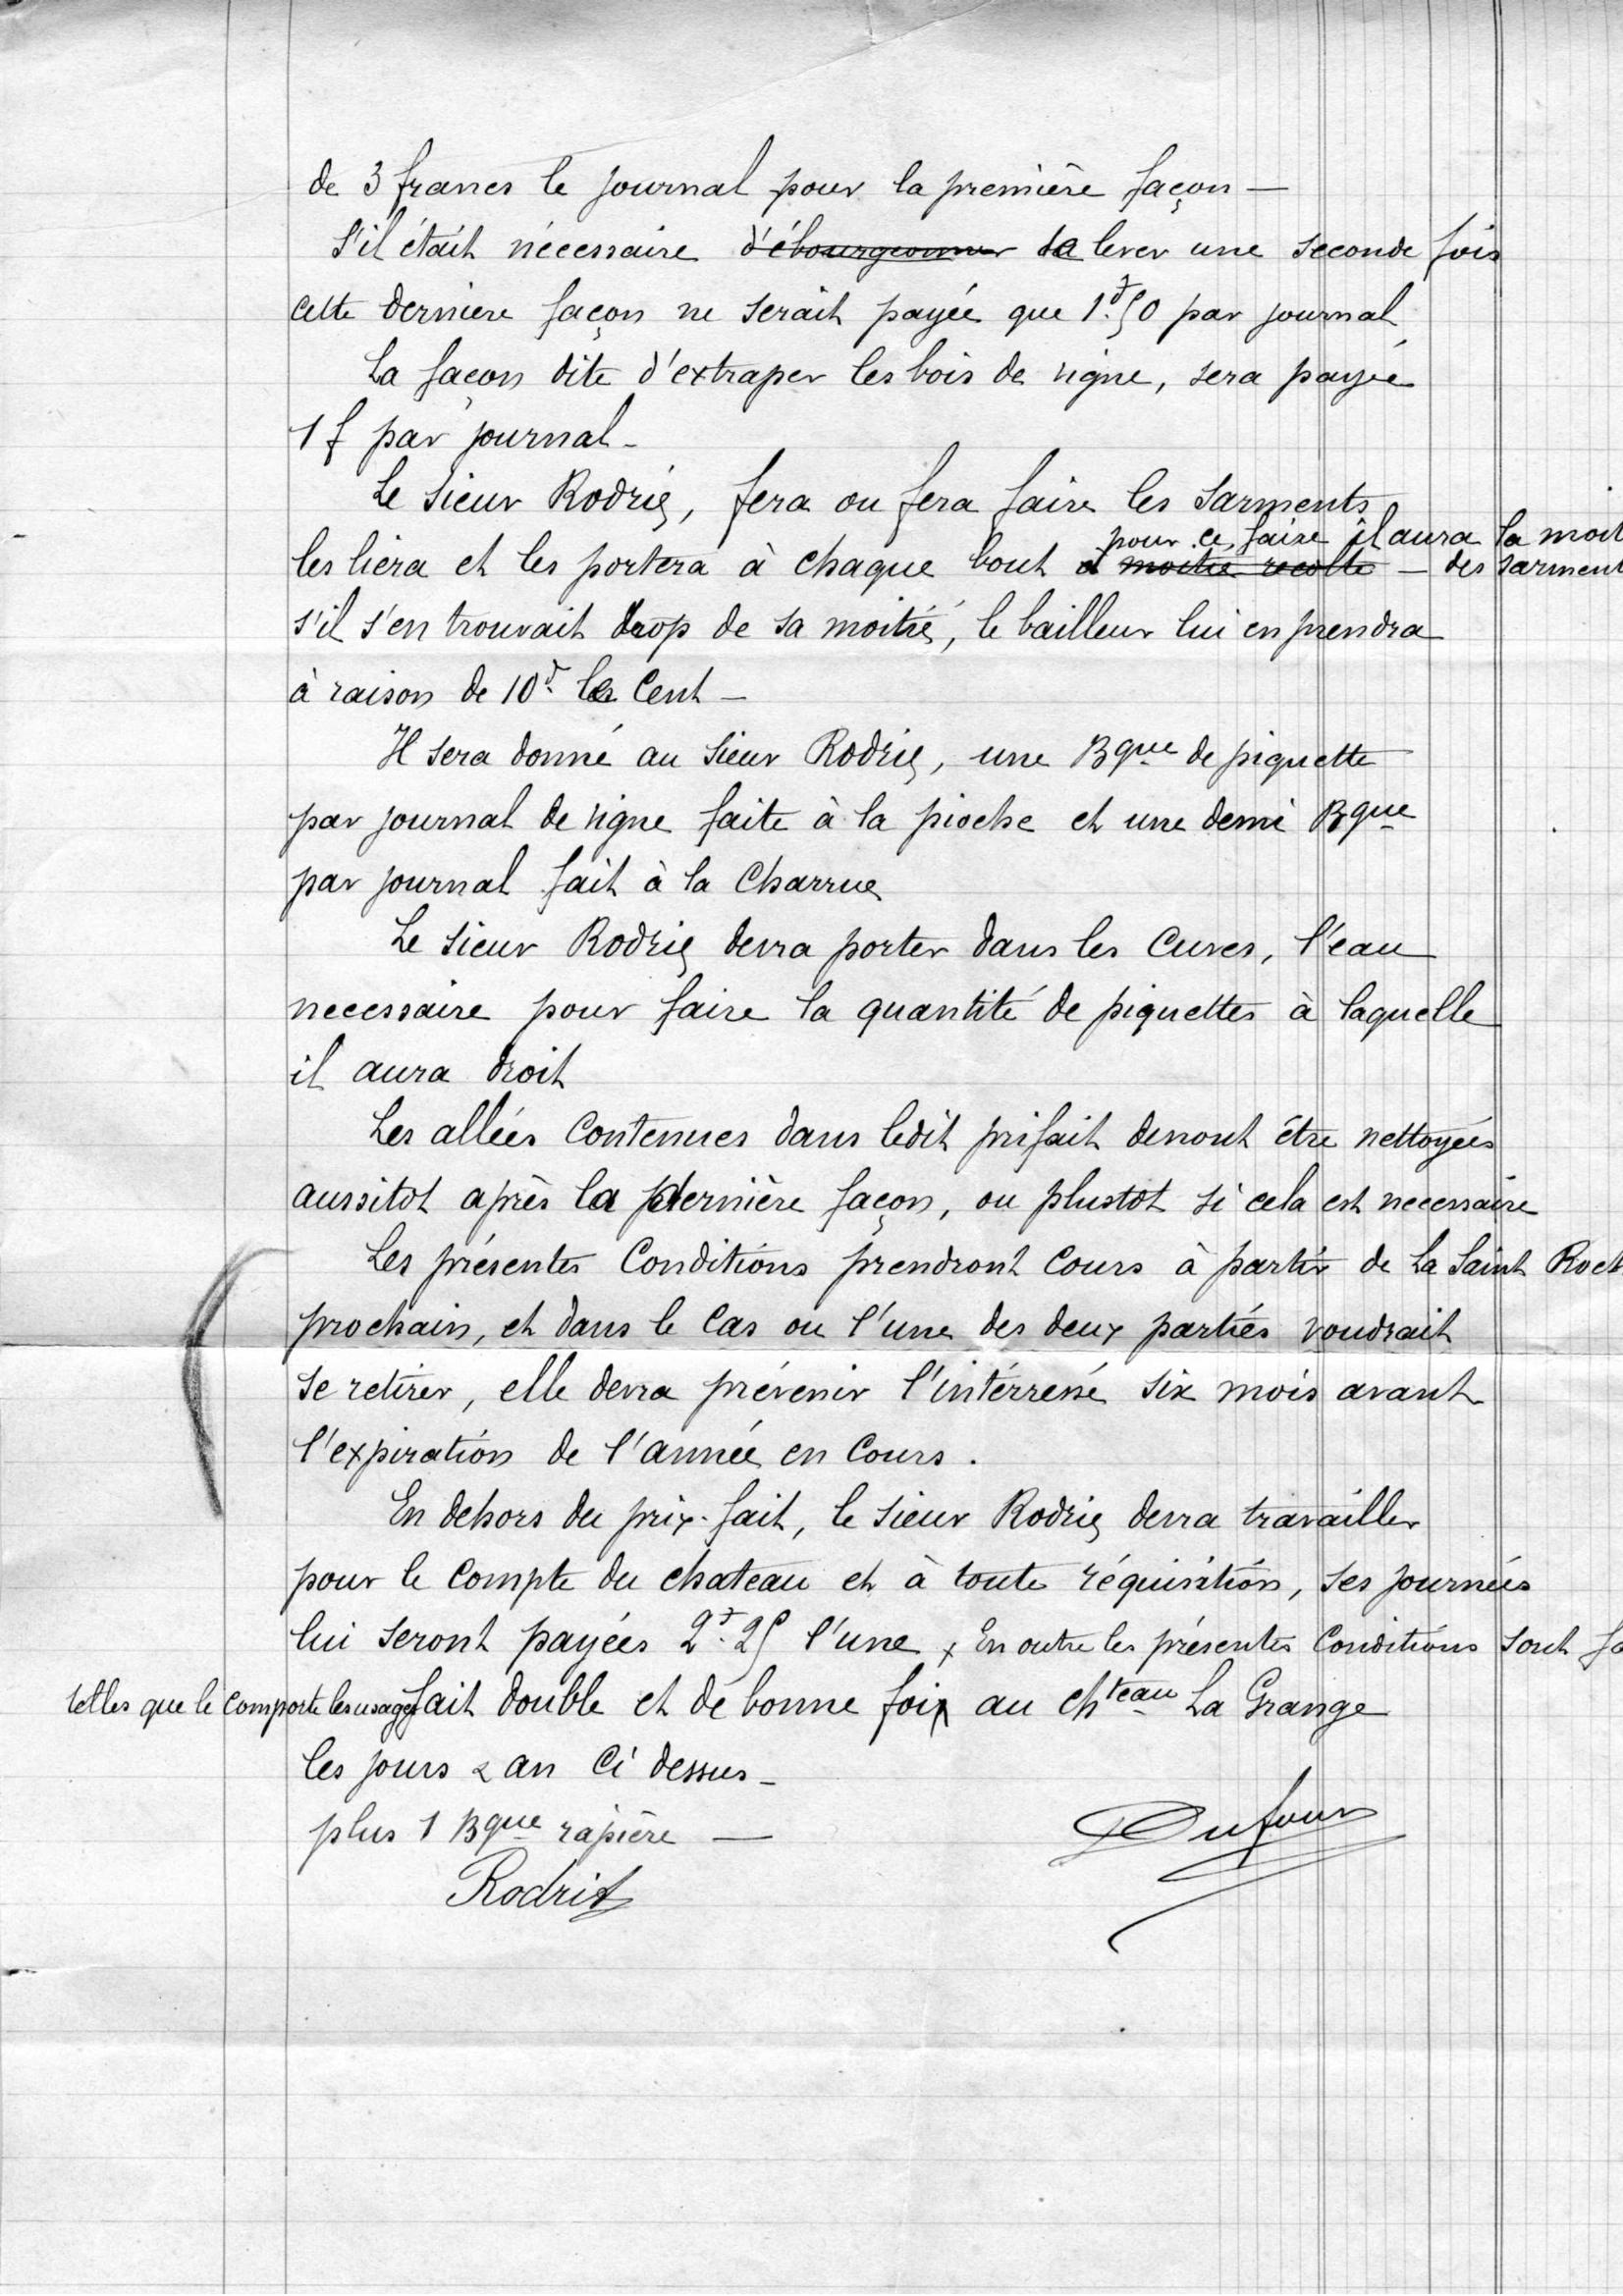 de 3 francs le journal pour la première façon —
S'il était nécessaire d'ébourgeonner de lever une seconde fois
cette derniere façon ne serait payée que 1f.50 par journal
La façon dite d'extraper les bois de vigne, sera payée
1 f par journal -
Le Sieur Rodrig, fera ou fera faire les sarments
pour ce faire il aura la moit
les liera et les portera à chaque bout et moitie recolte — des sarment
s'il s'en trouvait trop de sa moitié, le bailleur lui en prendra
à raison de 10f. le Cent —
Il sera donné au Sieur Rodrig, une Bque de piquette
par journal de vigne faite à la pioche et une demi Bque
par journal fait à la Charrue
Le Sieur Rodrig devra porter dans les Cuves, l'eau
necessaire pour faire la quantité de piquettes à laquelle
il aura droit
Les allées Contenues dans ledit prifait devront être nettoyées
aussitot après la dernière façon, ou plustot si cela est necessaire
Les présentes Conditions prendront Cours à partir de La Saint Roch
prochain, et dans le Cas ou l'une des deux parties voudrait
se retirer, elle devra prévenir l'intérressé six mois avant
l'expiration de l'année en Cours.
En dehors du prix-fait, le Sieur Rodrig devra travailler
pour le Compte du chateau et à toute réquisition, ses journées
lui seront payées 2f.25 l'une x En outre les présentes Conditions sont fa
telles que le comporte les usages fait double et de bonne foi au chteau La Grange
les jours & an Ci dessus -
plus 1 Bque rapière —
Dufour
Rodrig